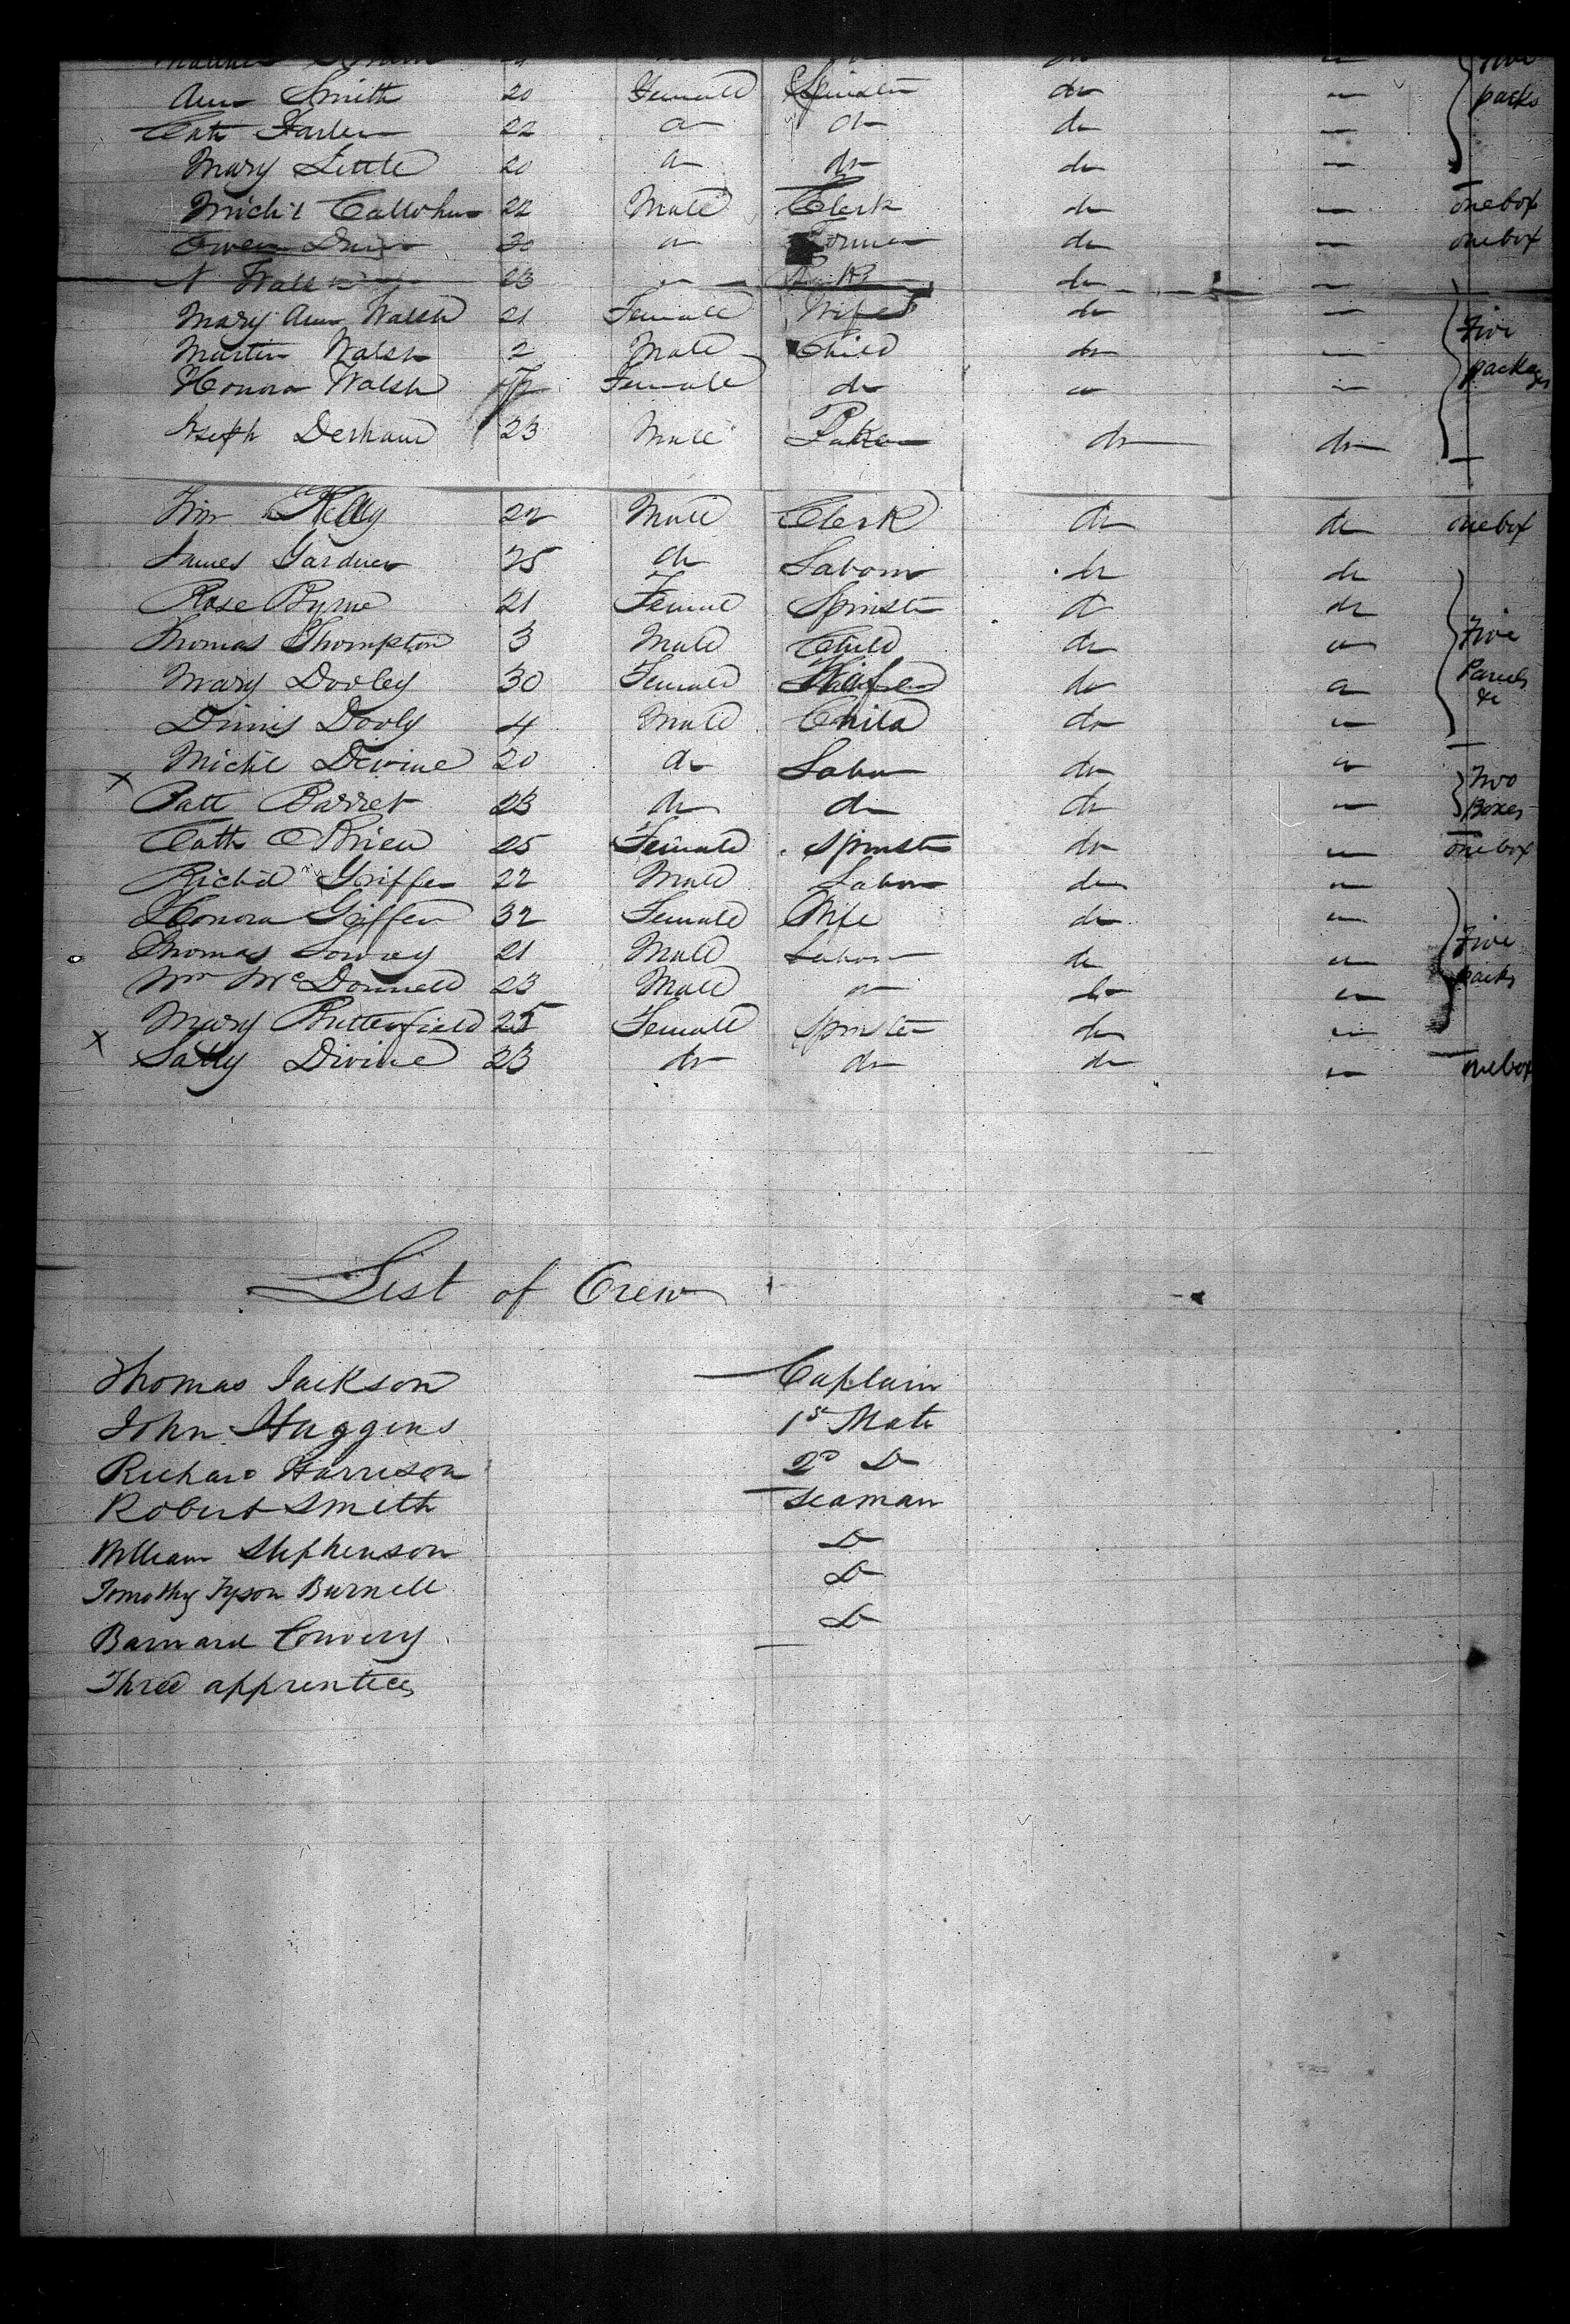 Ann Smith 20 Female Spinster do " packs
Cath 22 " do do "
Mary Little 20 " do do "
Mich'l Callohan 22 Male Clerk do " one box
Owen 30 " do " one box
Walsh 23 " do "
Mary Ann Walsh 21 Female Wife do " Five
Martin Walsh 2 Male Child do " packages
Honora Walsh Female do " "
Joseph Derham 23 Male do do
Kelly 22 Male Clerk do do one box
James Gardner 25 do Labour do do
Rose Byrne 21 Female Spinster do do
Thomas Thompton 3 Male Child do " Five
Mary Dooley 30 Female Wife do " Parcels &c
Dinnis Dooly 4 Male Child do "
Michl Devine 20 do Labor do " Two
x Patt Barret 23 do do do " Boxes
Cath O Brien 25 Female Spinster do " one box
Richd Griffen 22 Male Labor do "
Honora Griffen 32 Female Wife do "
Thomas 21 Male Labor do " Five
Wm McDonnell 23 Male " do " packs
Mary Butterfield 25 Female Spinster do "
x Sally Divine 23 do do do " one box
List of Crew
Thomas Jackson Captain
John Huggins 1st Mate
Richard Harrison 2d Do
Robert Smith Seaman
William Stephenson Do
Timothy Tyson Burnell Do
Barnard Convery Do
Three apprentices